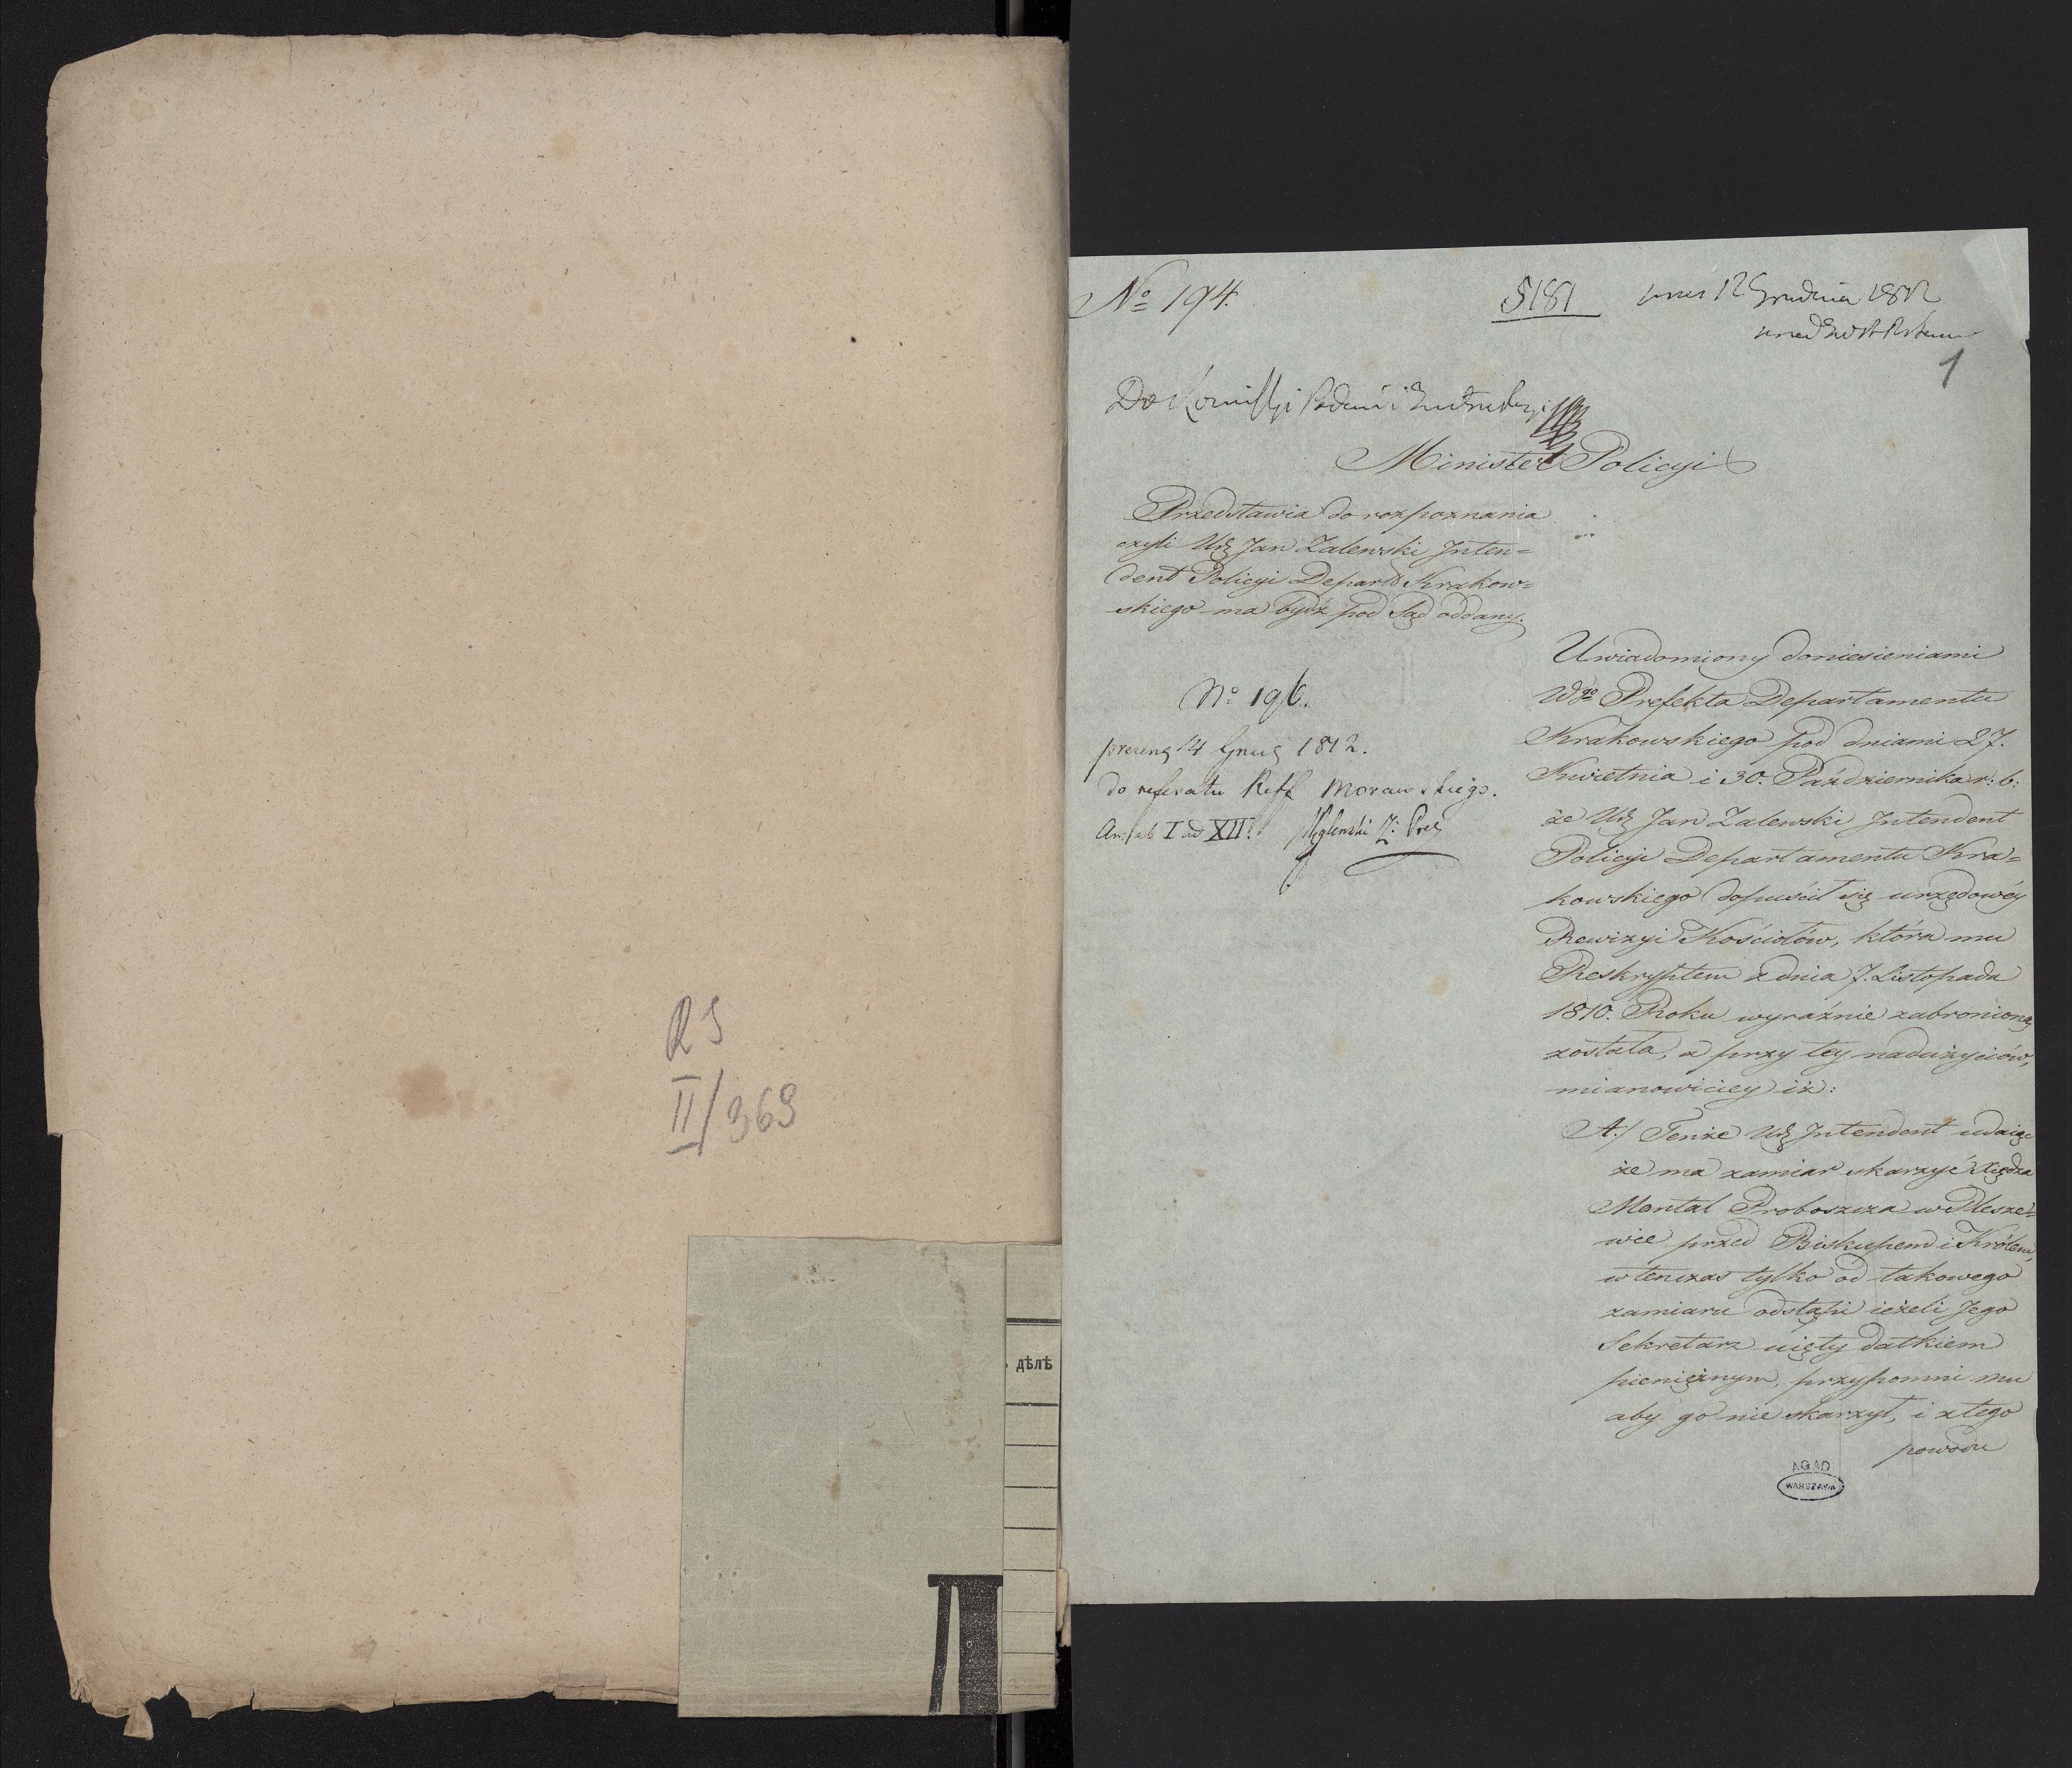 RS
II/369
дѣлѣ
No 194.
5181
12 Grudnia 1812
1
Do Kommissyi Podań i
Minister Policyi
Przedstawia do rozpoznania
czyli Ur. Jan Zalewski Inten=
dent Policyi Depart. Krakow=
skiego ma bydź pod Sąd oddany.
No 196.
14 Grud 1812.
do referatu Reff Morawskiego.
An: ab I ad XII.
Uwiadomiony doniesieniami
Wgo Prefekta Departamentu
Krakowskiego pod dniami 27.
Kwietnia i 30. Października r: b:
że Ur. Jan Zalewski Intendent
Policyi Departamentu Kra=
kowskiego dopuścił się urzędowéy
Rewizyi Kościołów, która mu
Reskryptem z dnia 7. Listopada
1810. Roku wyraźnie zabronioną
została, a przy tey nadużyciów,
mianowiciey iż:
A./ Tenże Ur. Intendent udaiąc
że ma zamiar skarzyć Xiędza
Mental Proboszcza w Plesze=
wie przed Biskupem i Królem,
wtenczas tylko od takowego
zamiaru odstąpi ieżeli Jego
Sekretarz uięty datkiem
pieniężnym, przypomni mu
aby go nie skarzył, i z tego
powodu
AGAD
WARSZAWA